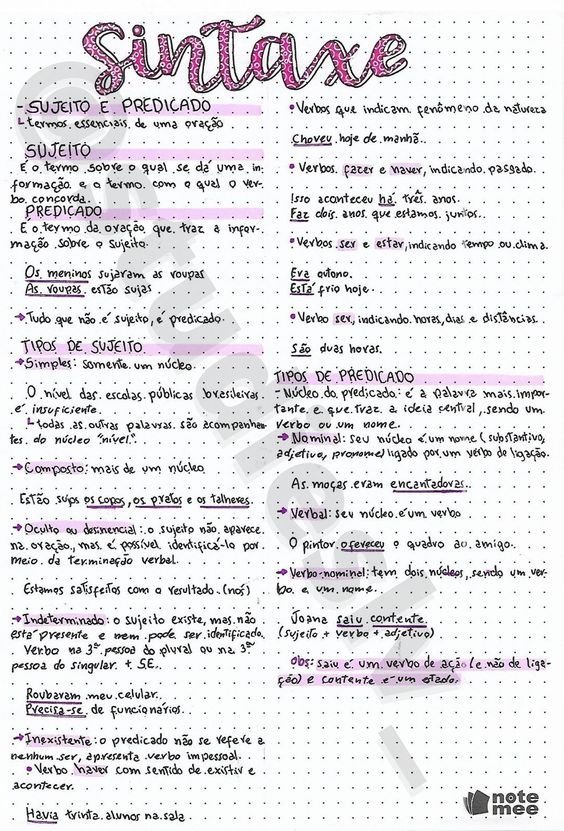 Sintaxe
- SUJEITO E PREDICADO
↳ termos essenciais de uma oração
SUJEITO
É o termo sobre o qual se dá uma in-
formação e o termo com o qual o ver-
bo concorda.
PREDICADO
É o termo da oração que traz a infor-
mação sobre o sujeito.
Os meninos sujaram as roupas
As roupas estão sujas
→ Tudo que não é sujeito, é predicado.
TIPOS DE SUJEITO
→ Simples: somente um núcleo.
O nível das escolas públicas brasileiras
é insuficiente.
↳ todas as outras palavras são acompanhan-
tes do núcleo "nível".
→ Composto: mais de um núcleo
Estão sujos os copos, os pratos e os talheres.
→ Oculto ou desinencial: o sujeito não aparece
na oração, mas é possível identificá-lo por
meio da terminação verbal.
Estamos satisfeitos com o resultado. (nós)
→ Indeterminado: o sujeito existe, mas não
está presente e nem pode ser identificado.
Verbo na 3ª pessoa do plural ou na 3ª
pessoa do singular + SE.
Roubaram meu celular.
Precisa-se de funcionários.
→ Inexistente: o predicado não se refere a
nenhum ser, apresenta verbo impessoal.
• Verbo haver com sentido de existir e
acontecer.
Havia trinta alunos na sala.
• Verbos que indicam fenômeno da natureza
Choveu hoje de manhã.
• Verbos fazer e haver, indicando passado.
Isso aconteceu há três anos.
Faz dois anos que estamos juntos.
• Verbos ser e estar, indicando tempo ou clima.
Era outono.
Está frio hoje.
• Verbo ser, indicando horas, dias e distâncias.
São duas horas.
TIPOS DE PREDICADO
- Núcleo do predicado: é a palavra mais impor-
tante e que traz a ideia central, sendo um
verbo ou um nome.
→ Nominal: seu núcleo é um nome (substantivo,
adjetivo, pronome) ligado por um verbo de ligação.
As moças eram encantadoras.
→ Verbal: seu núcleo é um verbo
O pintor ofereceu o quadro ao amigo.
→ Verbo-nominal: tem dois núcleos, sendo um ver-
bo e um nome.
Joana saiu contente
(sujeito + verbo + adjetivo)
Obs: saiu é um verbo de ação (e não de liga-
ção) e contente é um estado.
note
mee